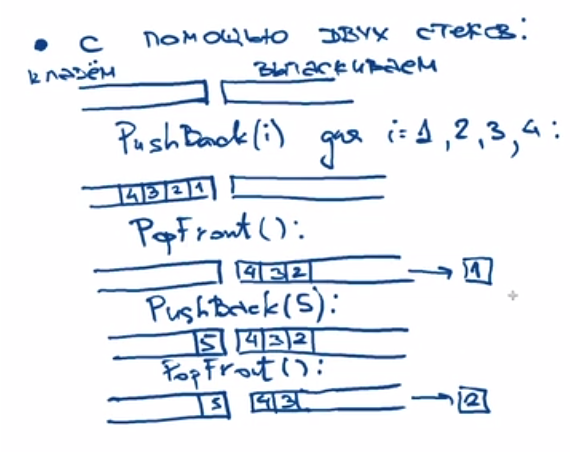 • С ПОМОЩЬЮ ДВУХ СТЕКОВ:
КЛАДЁМ ВЫТАСКИВАЕМ
PushBack(i) для i=1,2,3,4:
4 3 2 1
PopFront():
4 3 2 → 1
PushBack(5):
5 4 3 2
PopFront():
5 4 3 → 2